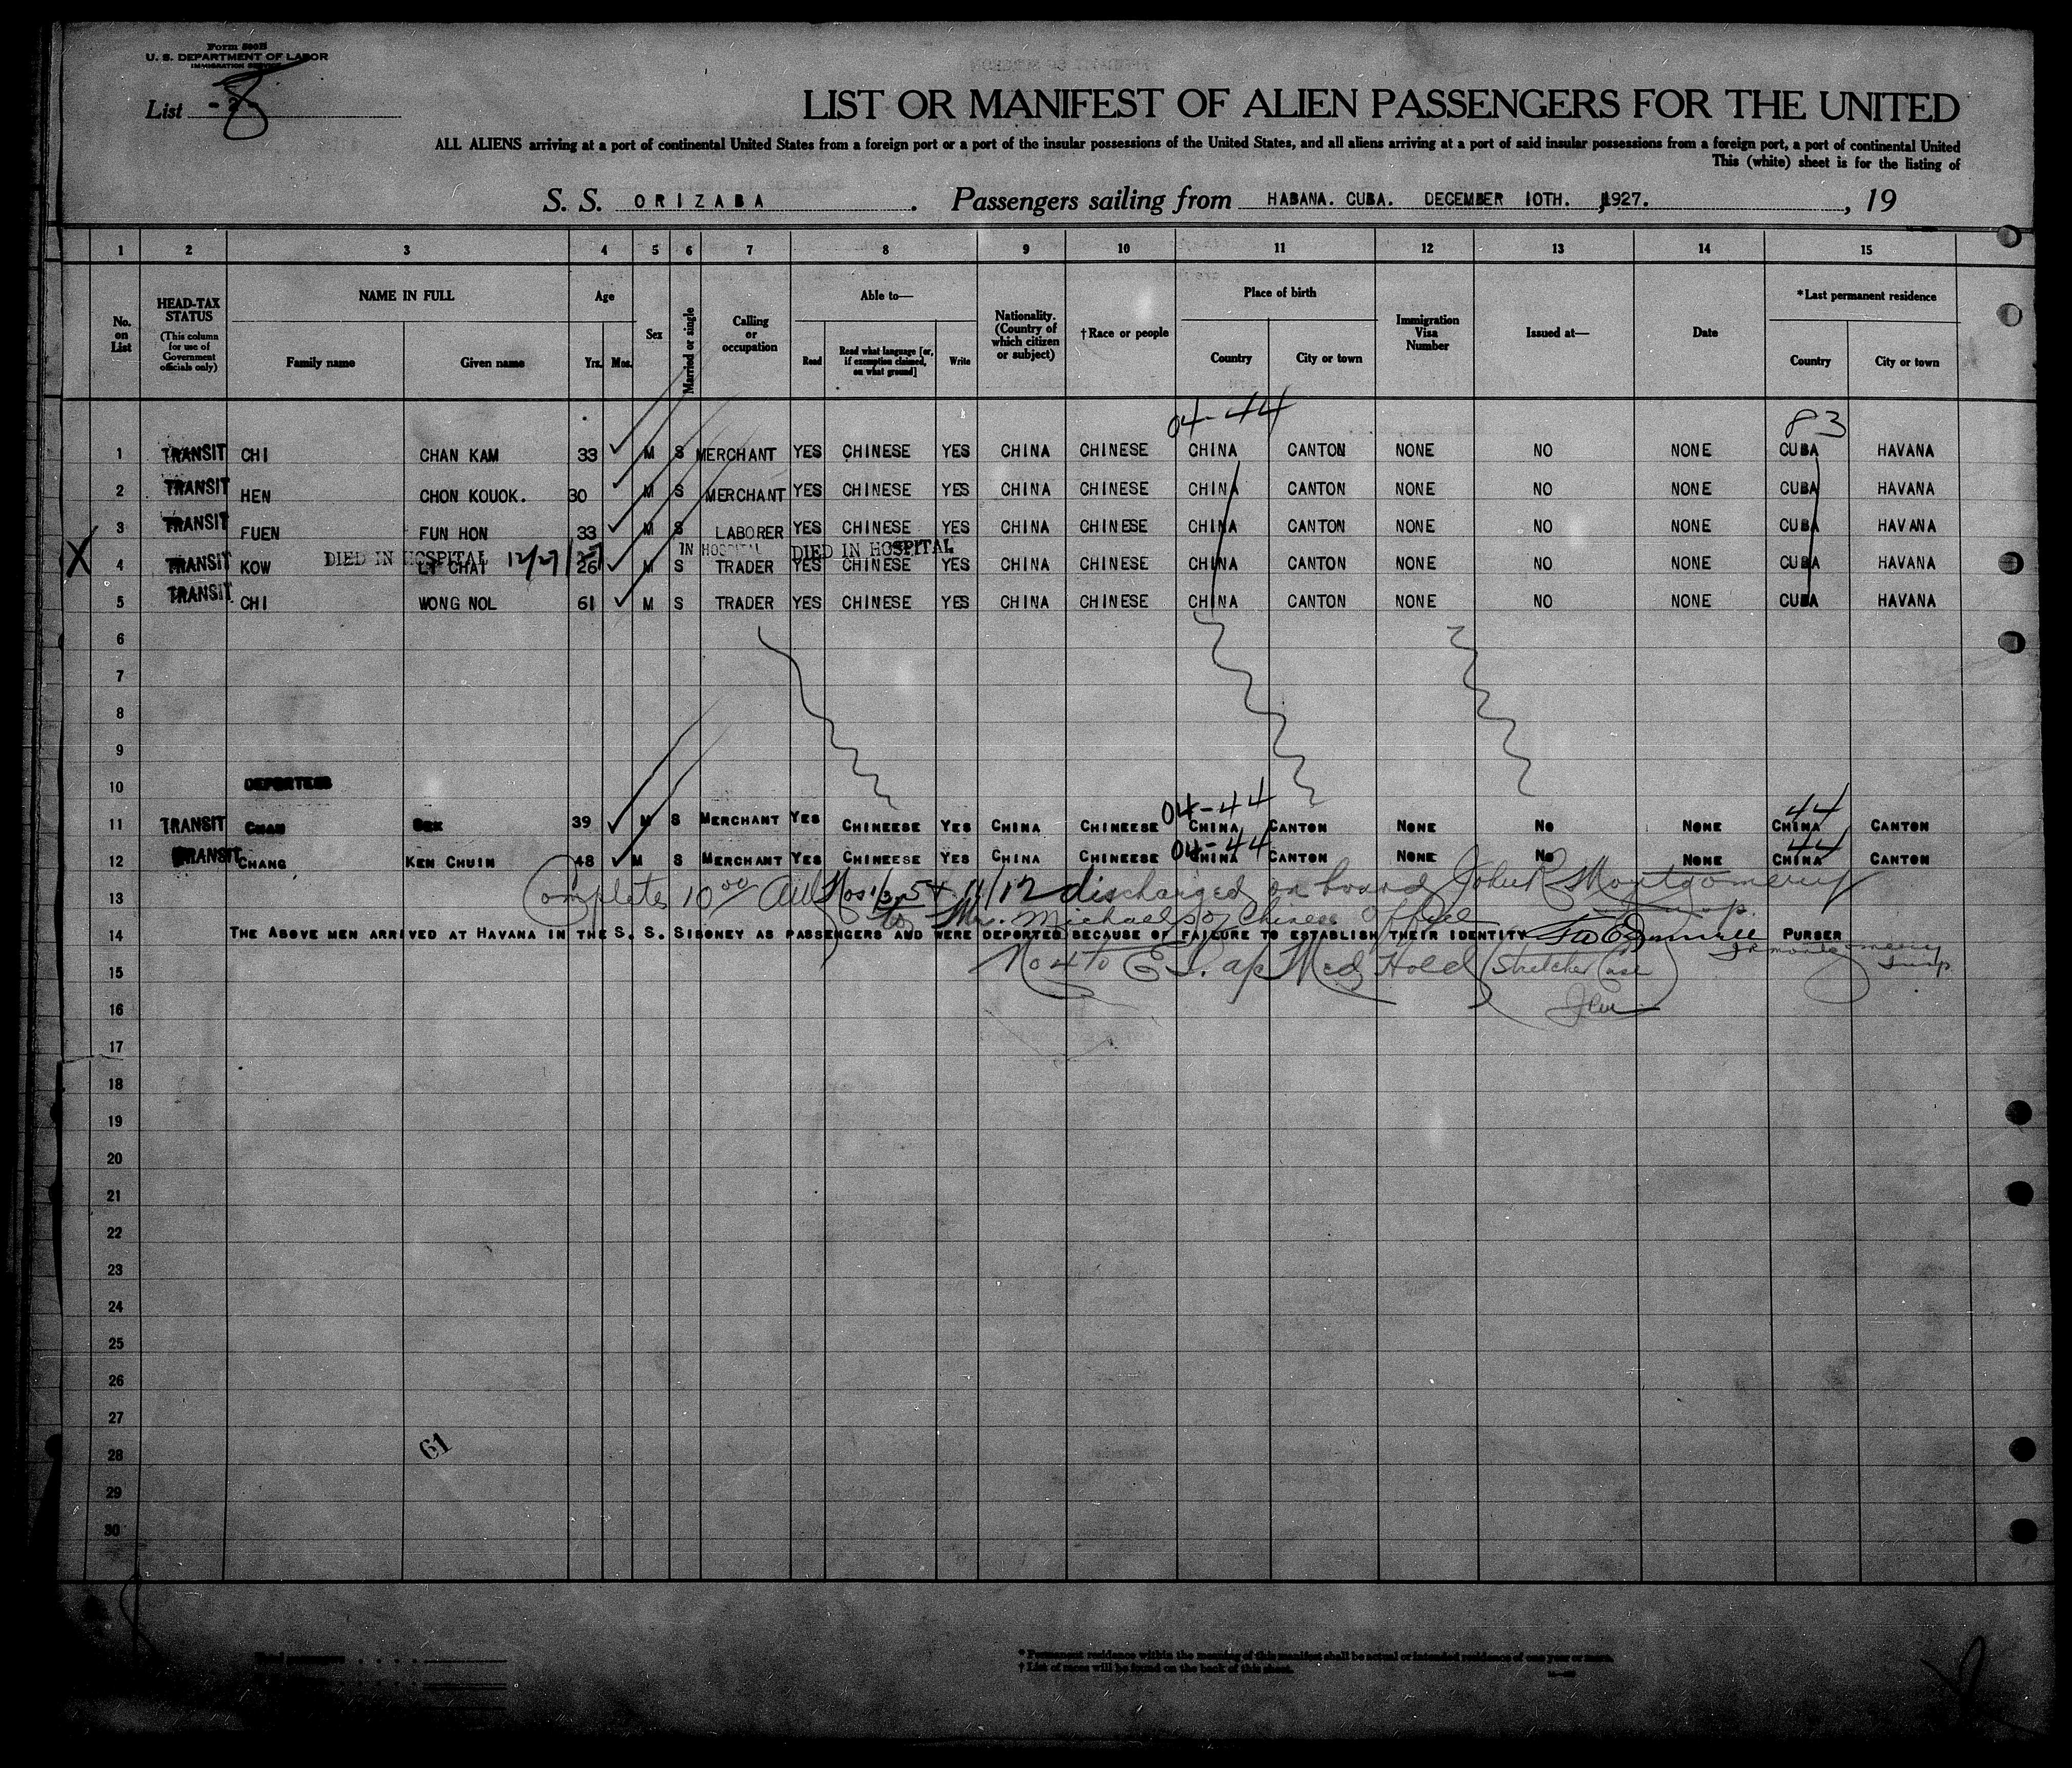 Form 500B
U. S. DEPARTMENT OF LABOR
IMMIGRATION SERVICE
List - 2 - 8
LIST OR MANIFEST OF ALIEN PASSENGERS FOR THE UNITED
ALL ALIENS arriving at a port of continental United States from a foreign port or a port of the insular possessions of the United States, and all aliens arriving at a port of said insular possessions from a foreign port, a port of continental United
This (white) sheet is for the listing of
S. S. ORIZABA . Passengers sailing from HABANA. CUBA. DECEMBER 10TH. 1927. , 19
1 2 3 4 5 6 7 8 9 10 11 12 13 14 15
No. on List
HEAD-TAX STATUS (This column for use of Government officials only)
NAME IN FULL Family name Given name
Age Yrs. Mos.
Sex
Married or single
Calling or occupation
Able to— Read Read what language [or, if exemption claimed, on what ground] Write
Nationality. (Country of which citizen or subject)
†Race or people
Place of birth Country City or town
Immigration Visa Number
Issued at—
Date
*Last permanent residence Country City or town
04-44 83
1 TRANSIT CHI CHAN KAM 33 M S MERCHANT YES CHINESE YES CHINA CHINESE CHINA CANTON NONE NO NONE CUBA HAVANA
2 TRANSIT HEN CHON KOUOK. 30 M S MERCHANT YES CHINESE YES CHINA CHINESE CHINA CANTON NONE NO NONE CUBA HAVANA
3 TRANSIT FUEN FUN HON 33 M S LABORER YES CHINESE YES CHINA CHINESE CHINA CANTON NONE NO NONE CUBA HAVANA
DIED IN HOSPITAL 12/27/27 IN HOSPITAL DIED IN HOSPITAL
X 4 TRANSIT KOW LY CHAI 26 M S TRADER YES CHINESE YES CHINA CHINESE CHINA CANTON NONE NO NONE CUBA HAVANA
5 TRANSIT CHI WONG NOL 61 M S TRADER YES CHINESE YES CHINA CHINESE CHINA CANTON NONE NO NONE CUBA HAVANA
6
7
8
9
10 DEPORTEES
04-44 44
11 TRANSIT CHAN 39 M S MERCHANT YES CHINEESE YES CHINA CHINEESE CHINA CANTON NONE NO NONE CHINA CANTON
04-44 44
12 TRANSIT CHANG KEN CHUIN 48 M S MERCHANT YES CHINEESE YES CHINA CHINEESE CHINA CANTON NONE NO NONE CHINA CANTON
13 Complete 10 00 AM Nos 1/3, 5 + 11/12 discharged on board John R Montgomery
to Mr. Michaels of Chinese Office Insp.
14 THE ABOVE MEN ARRIVED AT HAVANA IN THE S. S. SIBONEY AS PASSENGERS AND WERE DEPORTED BECAUSE OF FAILURE TO ESTABLISH THEIR IDENTITY PURSER
15 No 4 to E I. a/c Med Hold (Stretcher Case) Insp
16
17
18
19
20
21
22
23
24
25
26
27
28
61
29
30
Total passengers
* Permanent residence within the meaning of this manifest shall be actual or intended residence of one year or more.
† List of races will be found on the back of this sheet.